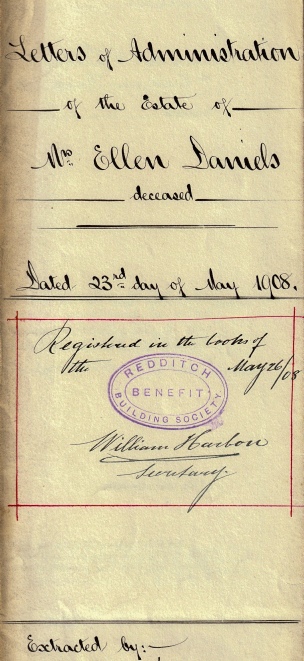 Letters of Administration
of the Estate of
Mrs Ellen Daniels
deceased
Dated 23rd day of May 1908.
Registered in the books of
the May 26/08
REDDITCH
BENEFIT
BUILDING SOCIETY
William Harbon
Secretary.
Extracted by:—